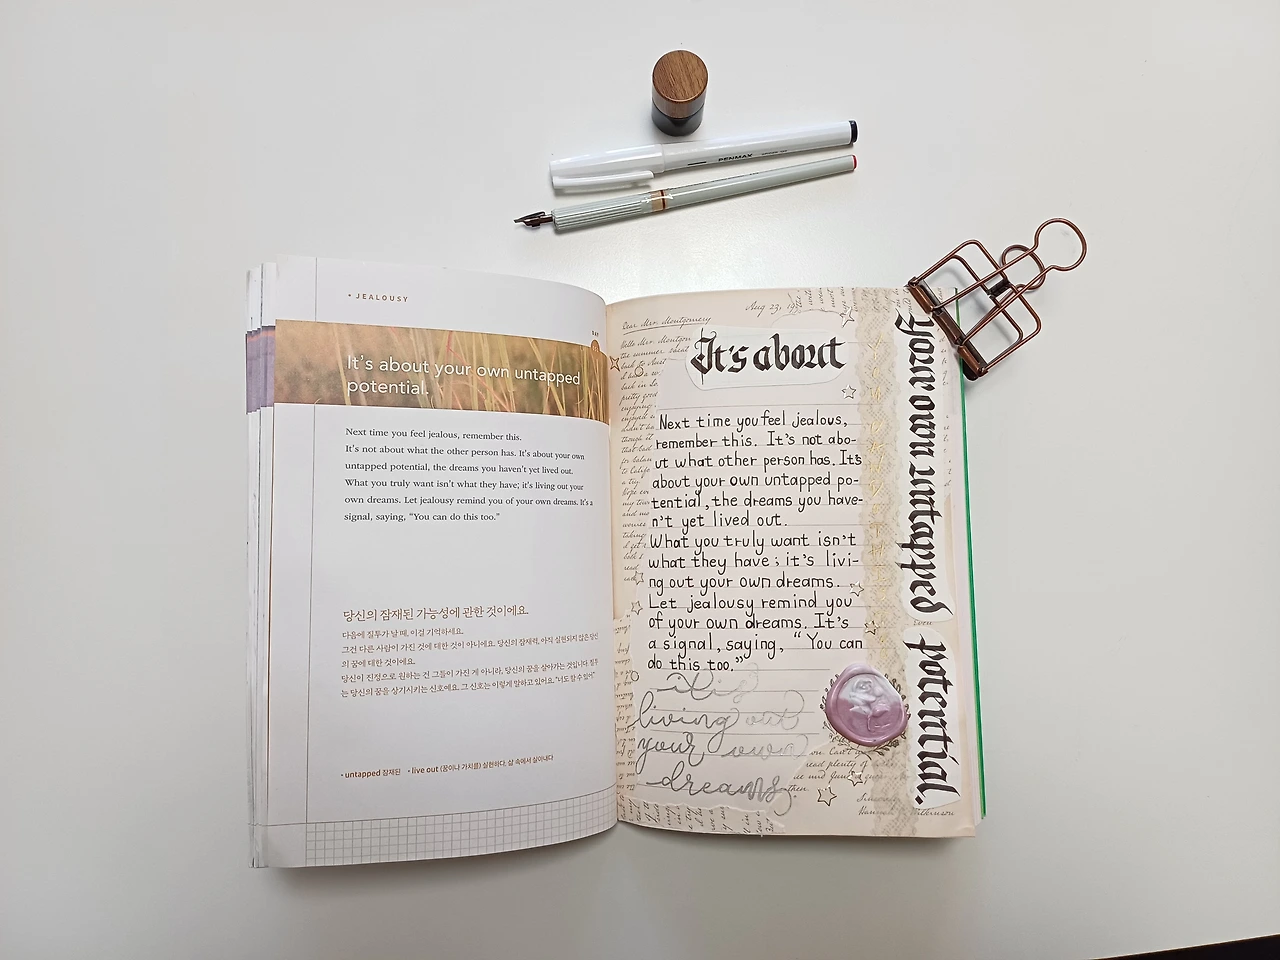 PENMAX
• JEALOUSY
DAY
It's about your own untapped
potential.
Next time you feel jealous, remember this.
It's not about what the other person has. It's about your own
untapped potential, the dreams you haven't yet lived out.
What you truly want isn't what they have; it's living out your
own dreams. Let jealousy remind you of your own dreams. It's a
signal, saying, “You can do this too.”
당신의 잠재된 가능성에 관한 것이에요.
다음에 질투가 날 때, 이걸 기억하세요.
그건 다른 사람이 가진 것에 대한 것이 아니에요. 당신의 잠재력, 아직 실현되지 않은 당신
의 꿈에 대한 것이에요.
당신이 진정으로 원하는 건 그들이 가진 게 아니라, 당신의 꿈을 살아가는 것입니다. 질투
는 당신의 꿈을 상기시키는 신호예요. 그 신호는 이렇게 말하고 있어요. “너도 할 수 있어”
• untapped 잠재된 • live out (꿈이나 가치를) 실현하다, 삶 속에서 살아내다
Aug 23,
Dear Mrs. Montgomery
It's about
your own untapped potential.
Next time you feel jealous,
remember this. It's not abo-
ut what other person has. It's
about your own untapped po-
tential, the dreams you have-
n't yet lived out.
What you truly want isn't
what they have; it's livi-
ng out your own dreams.
Let jealousy remind you
of your own dreams. It's
a signal, saying, “You can
do this too.”
it is
living out
your own
dreams.